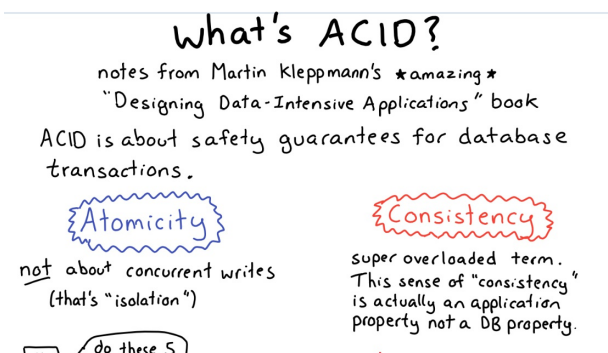 what's ACID?
notes from Martin Kleppmann's *amazing*
"Designing Data-Intensive Applications" book
ACID is about safety guarantees for database
transactions.
Atomicity
not about concurrent writes
(that's "isolation")
do these 5
Consistency
super overloaded term.
This sense of "consistency"
is actually an application
property not a DB property.